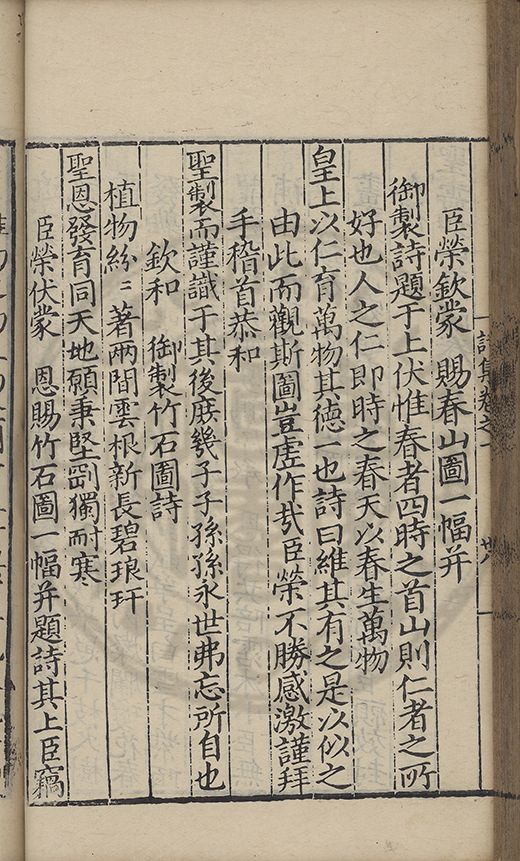 臣榮欽蒙　賜春山圖一幅并
御製詩題于上伏惟春者四時之首山則仁者之所
好也人之仁即時之春天以春生萬物
皇上以仁育萬物其德一也詩曰維其有之是以似之
由此而觀斯圖豈虛作哉臣榮不勝感激謹拜
手稽首恭和
聖製而謹識于其後庶幾子子孫孫永世弗忘所自也
欽和　御製竹石圖詩
植物紛〻著兩間雲根新長碧琅玕
聖恩發育同天地願秉堅剛獨耐寒
臣榮伏蒙　恩賜竹石圖一幅并題詩其上臣竊